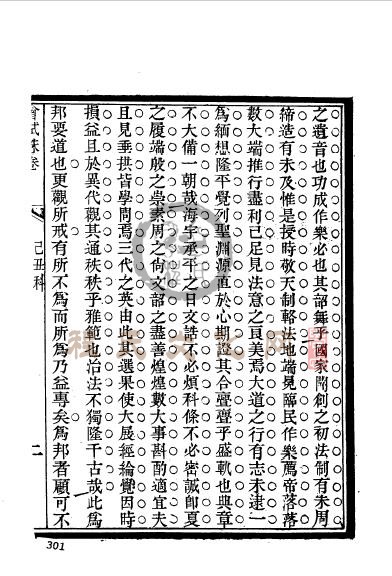 之遺音也功成作樂必也其韶舞乎國家開創之初法制有未周
締造有未及惟是授時敬天制輅法地端冕臨民作樂薦帝落落
數大端推行盡利已足見法意之頁美焉大道之行有志未逮一
爲緬想隆平覺列聖淵源直於心期遇其合亹亹乎盛軌也典章
不大備一朝哉海宇承平之日文誥不必煩科條不必密誠卽夏
之履端殷之崇素周之尙文韶之盡善煌煌數大事斟酌適宜夫
且見垂拱皆學問焉三代之英由此其選果使大展經綸覺因時
損益且於異代觀其通秩秩乎雅範也治法不獨隆千古哉此爲
邦要道也更觀所戒有所不爲而所爲乃益專矣爲邦者顧可不
會試硃卷
己丑科
二
301